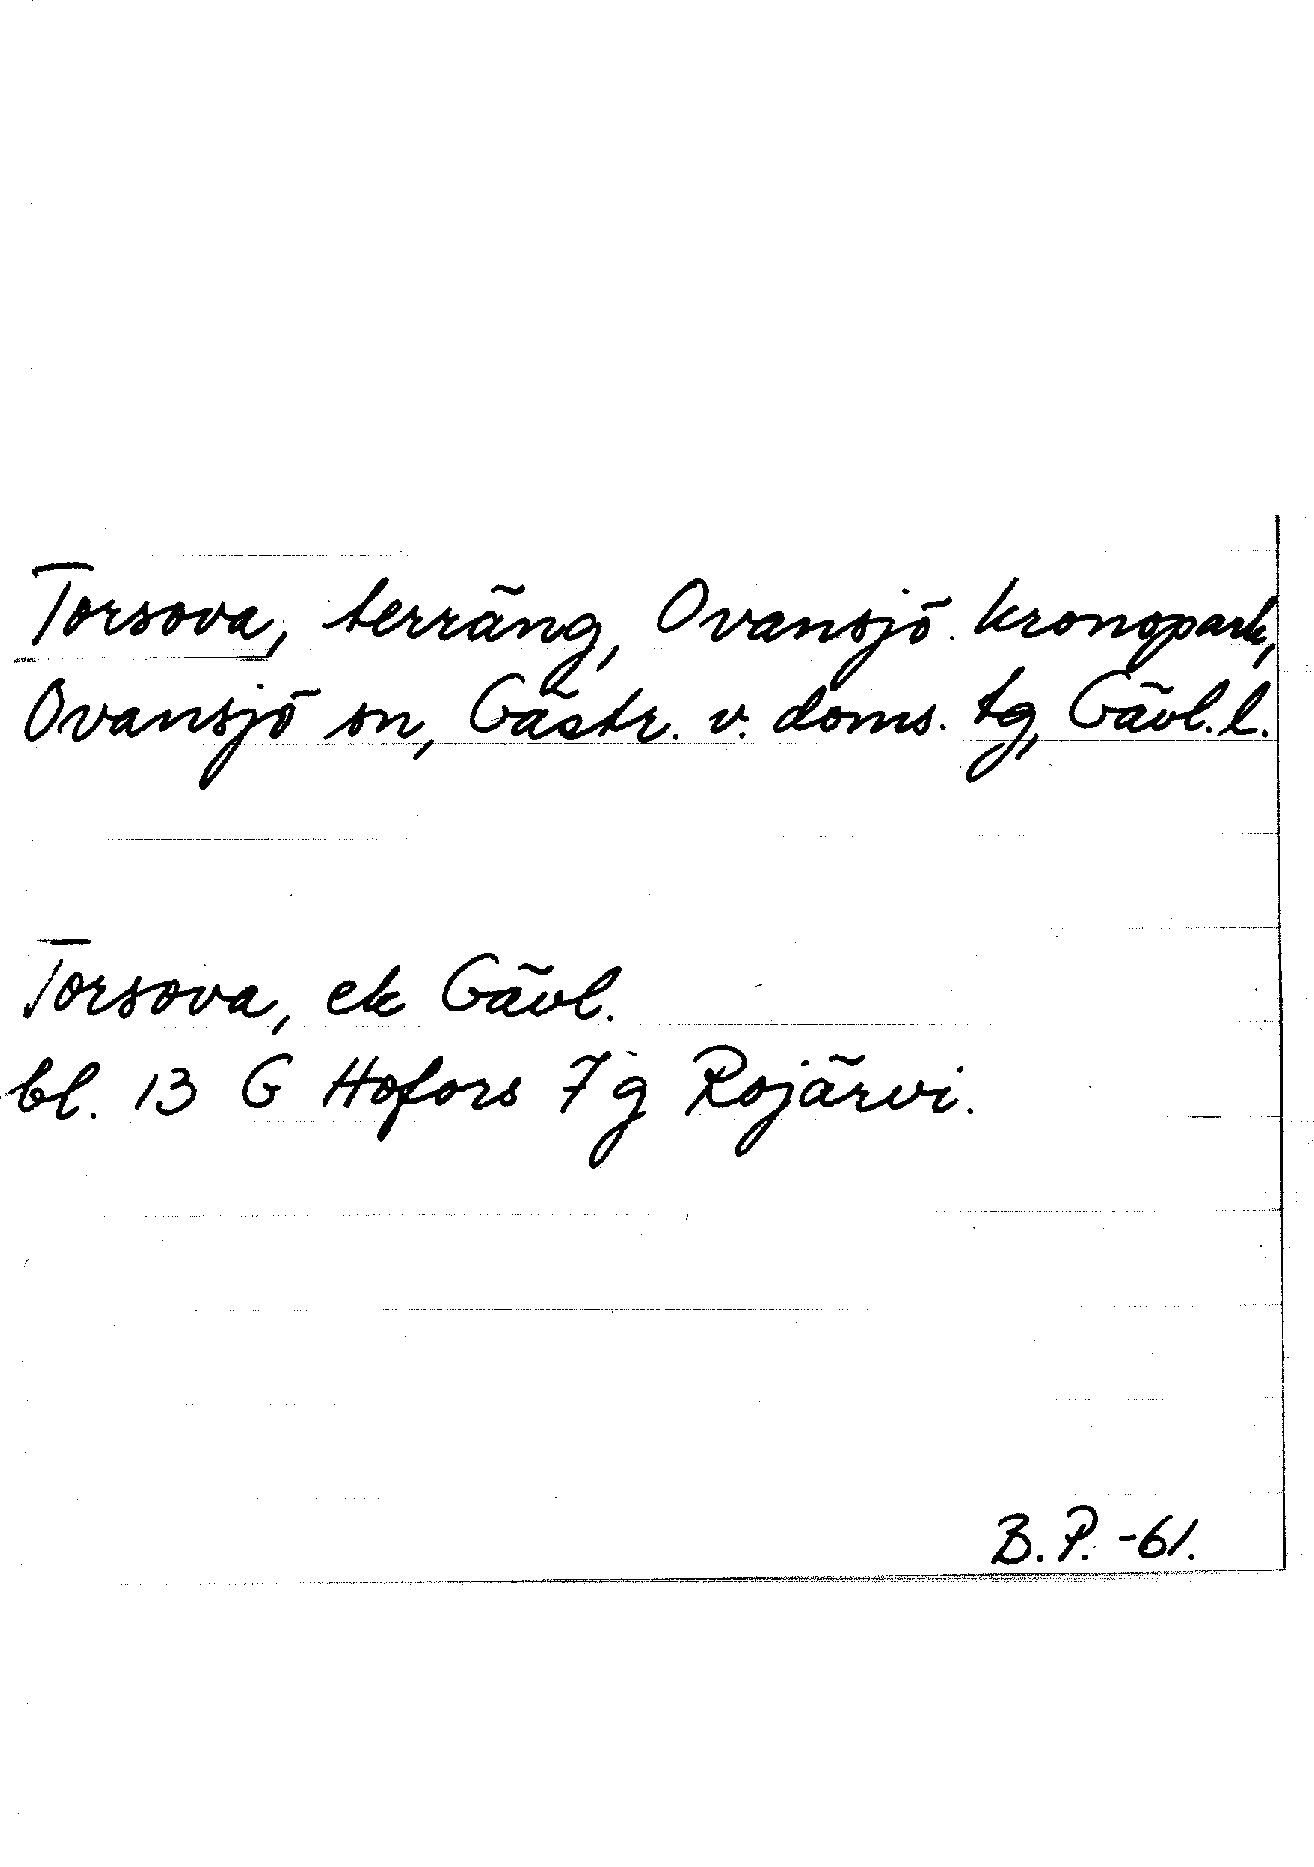 Torsova, terräng, Ovansjö kronopark,
Ovansjö sn, Gästr. v. doms. tg, Gävl. l.
Torsova, ek Gävl.
bl. 13 G Hofors 7 g Rojärvi.
B. P. -61.